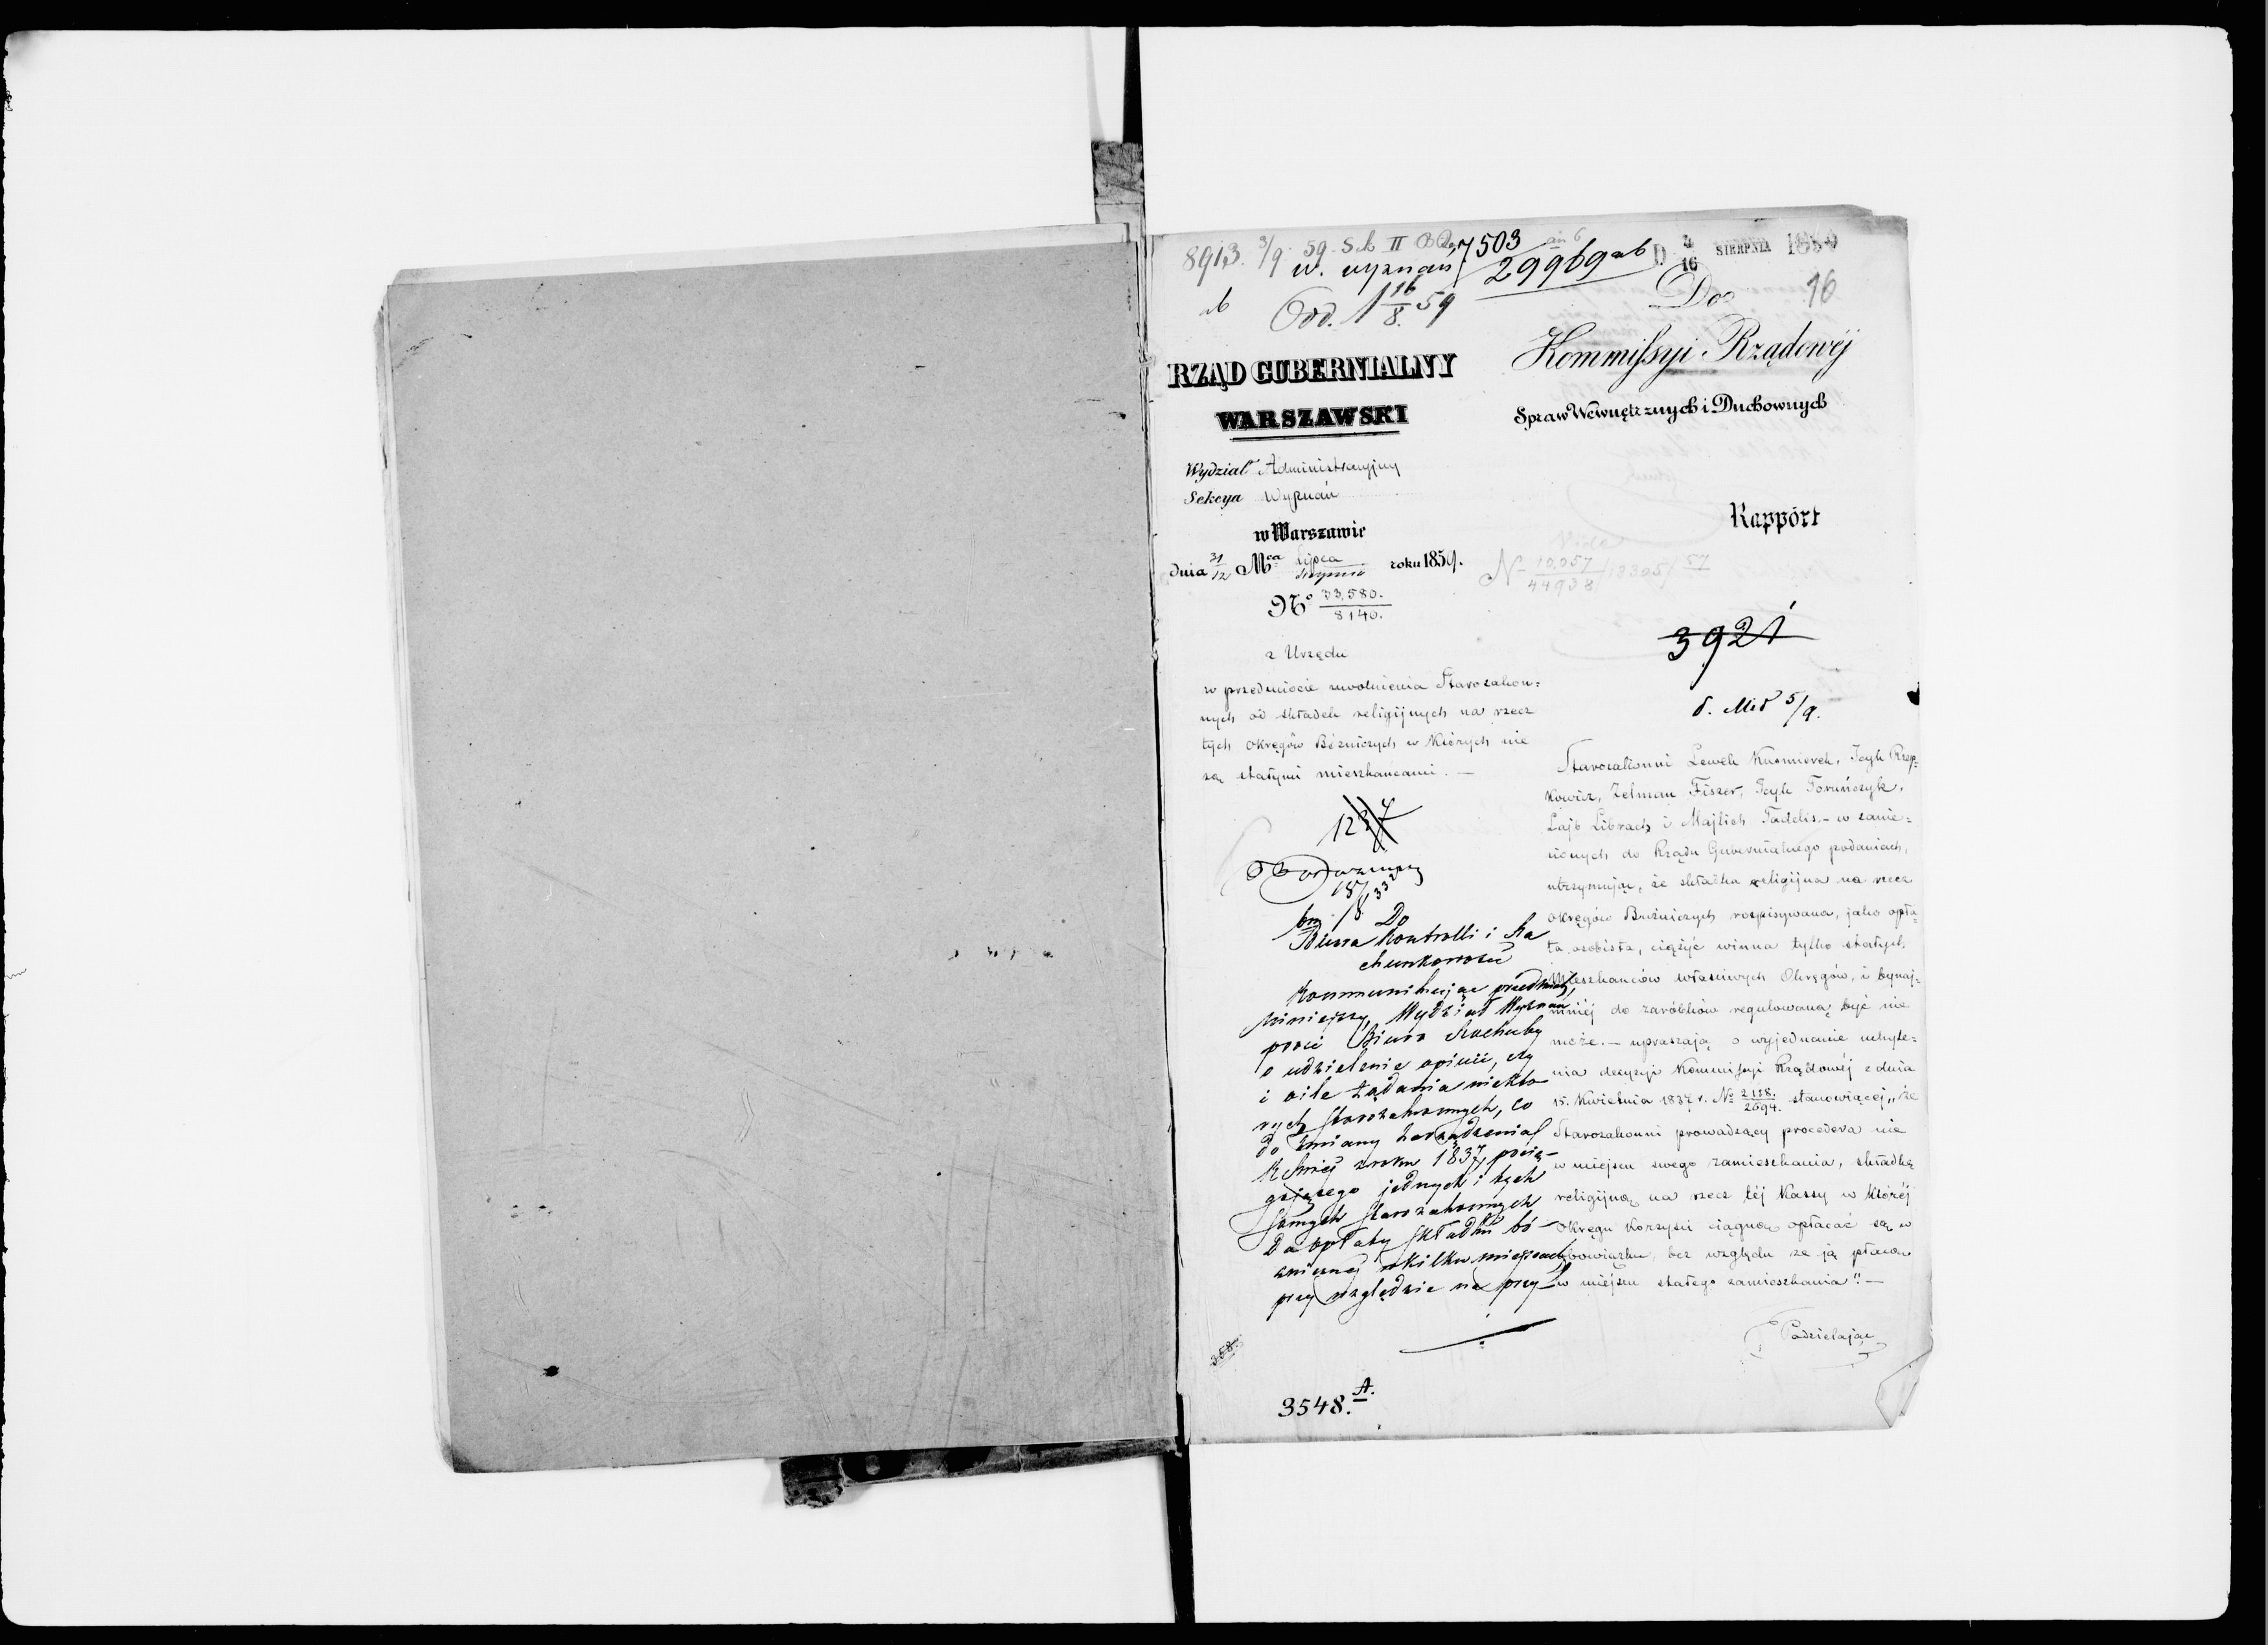 8913. 3/9 59 Sek II
w. wyznań 7503
29969 ab
D 4/16 SIERPNIA 1859
ab
Odd. 1 16/8. 59
16
Do
Kommissyi Rządowéj
Spraw Wewnętrznych i Duchownych
RZĄD GUBERNIALNY
WARSZAWSKI
Wydział Administracyjny
Sekcya Wyznań
w Warszawie
dnia 31/12 Mca Lipca/Sierpnia roku 1859.
No 33,580./8140.
Rappórt
Vide
N 10,057/44938/18305/57
3921
z Urzędu
w przedmiocie uwolnienia Starozakon=
nych od składek religijnych na rzecz
tych okręgów Bóźniczych w których nie
są stałymi mieszkańcami. —
5/9.
Starozakonni Lewek Kusmierek, Icyk Rzep=
kowicz, Zelman Fiszer, Icyk Toruńczyk,
Lajb Librach i Majlich Tadelis,– w zanie=
sionych do Rządu Gubernialnego podaniach,
utrzymując, że składka religijna na rzecz
okręgów Bóźniczych rozpisywana, jako opła=
ta osobista, ciężyć winna tylko stałych
Mieszkańców właściwych Okręgów, i bynaj=
mniéj do zarobków regulowaną być nie
może.— upraszają o wyjednanie uchyle=
nia decyzyi Kommissyi Rządowéj z dnia
15. Kwietnia 1837 r. No 2128./2694. stanowiącéj „że
Starozakonni prowadzący procedera nie
w miejscu swego zamieszkania, składkę
religijną na rzecz téj Kassy w któréj
okręgu korzyści ciągną opłacać są w
obowiązku, bez względu że ją płacą
w miejscu stałego zamieszkania". —
Podzielając
1237
Do
Biura Kontrolli i Ra
chunkowości
Kommunikując przedmiot
niniejszy, Wydział Wyznań
prosi Biuro Rachuby
o udzielenie opinii, czy
i o ile żądania niektó
rych starozakonnych, co
do zmiany zarządzenia
K. Skiéj z roku 1837, pocią-
gającego jednych i tych
samych starozakonnych
do opłaty składki bó-
zniczéj w kilku miejscach,
przy względzie na przy-
358
3548. A.